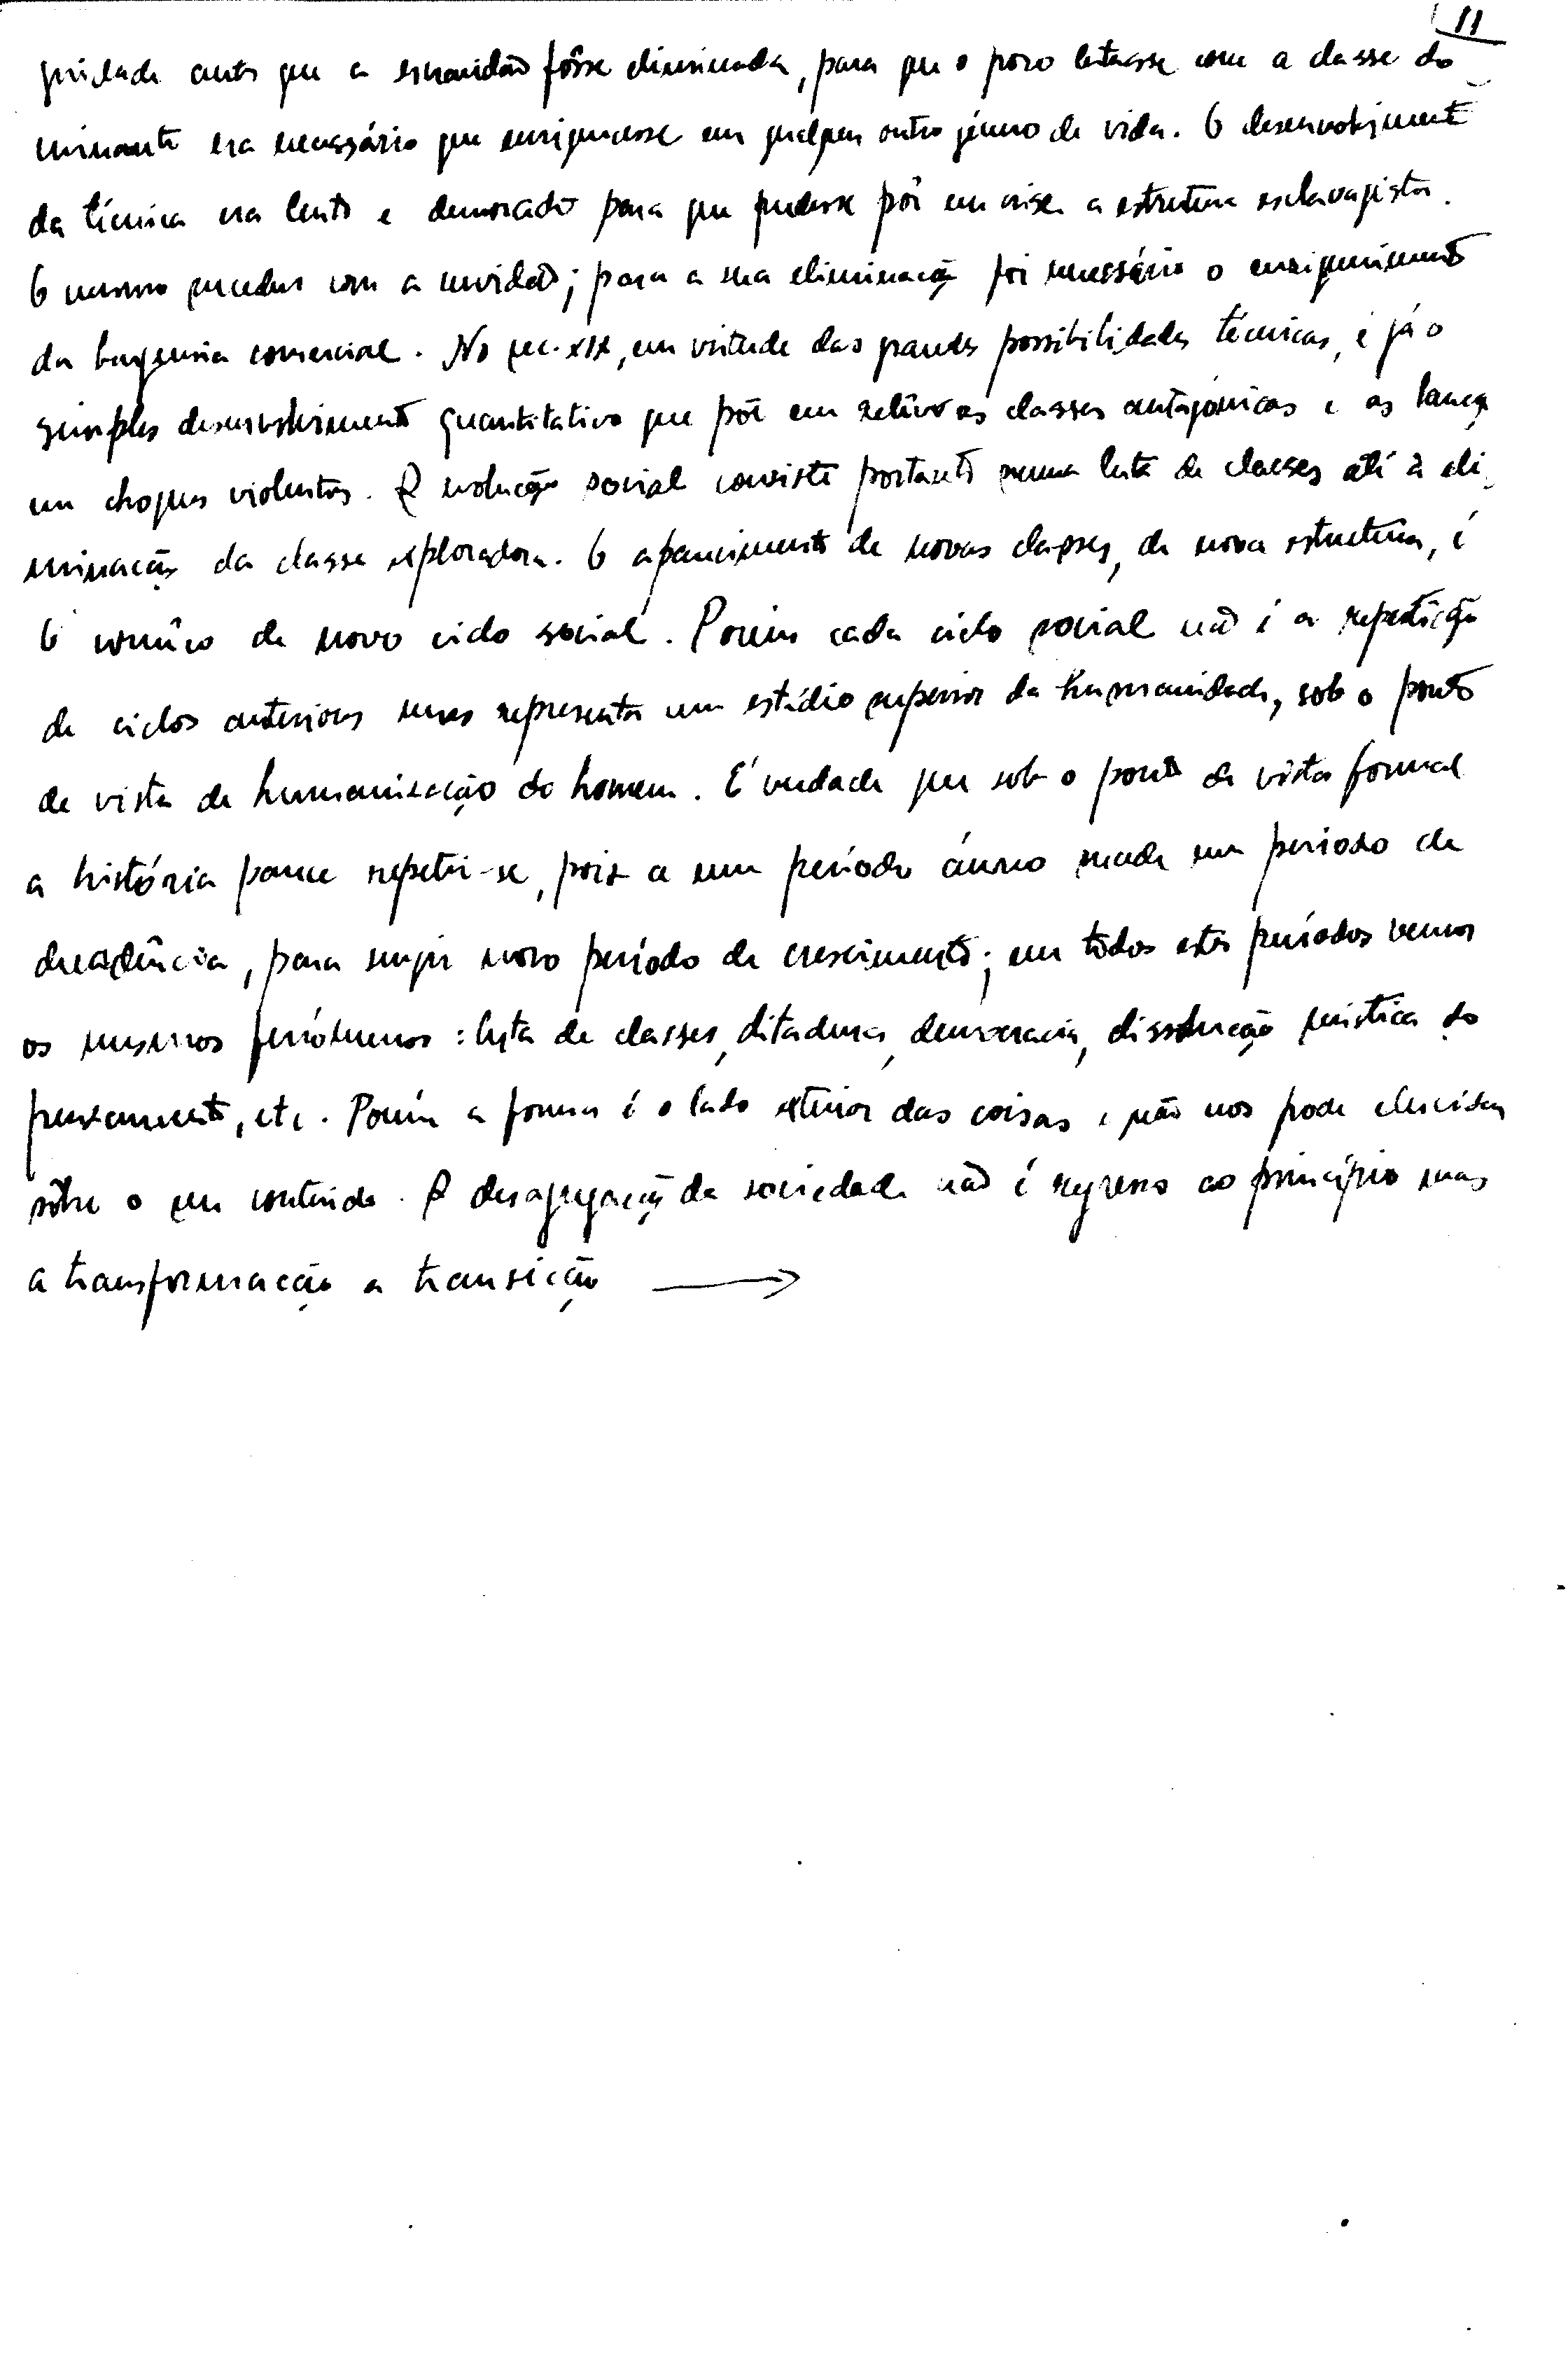 11
guidade antes que a escravidão fôsse eliminada, para que o povo lutasse com a classe do
minante era necessário que enriquecesse em qualquer outro género de vida. O desenvolvimento
da técnica era lento e demorado para que pudesse pôr em crise a estrutura esclavagista.
O mesmo sucedeu com a servidão; para a sua eliminação foi necessário o enriquecimento
da burguesia comercial. No sec. XIX, em virtude das grandes possibilidades técnicas, é já o
simples desenvolvimento quantitativo que põe em relêvo as classes antagónicas e as lança
em choques violentos. A evolução social consiste portanto numa luta de classes até à eli
minação da classe exploradora. O aparecimento de novas classes, de nova estructura, é
O comêço de novo ciclo social. Porém cada ciclo social não é a repetição
de ciclos anteriores mas representa um estádio superior da humanidade, sob o ponto
de vista de humanização do homem. É verdade que sob o ponto de vista formal
a história parece repetir-se, pois a um período áureo sucede um período de
decadência, para surgir novo período de crescimento; em todos estes períodos vemos
os mesmos fenómenos: luta de classes, ditadura, democracia, dissolução mística do
pensamento, etc. Porém a forma é o lado exterior das coisas e não nos pode elucidar
sôbre o seu conteúdo. A desagregação da sociedade não é regresso ao princípio mas
a transformação a transição →